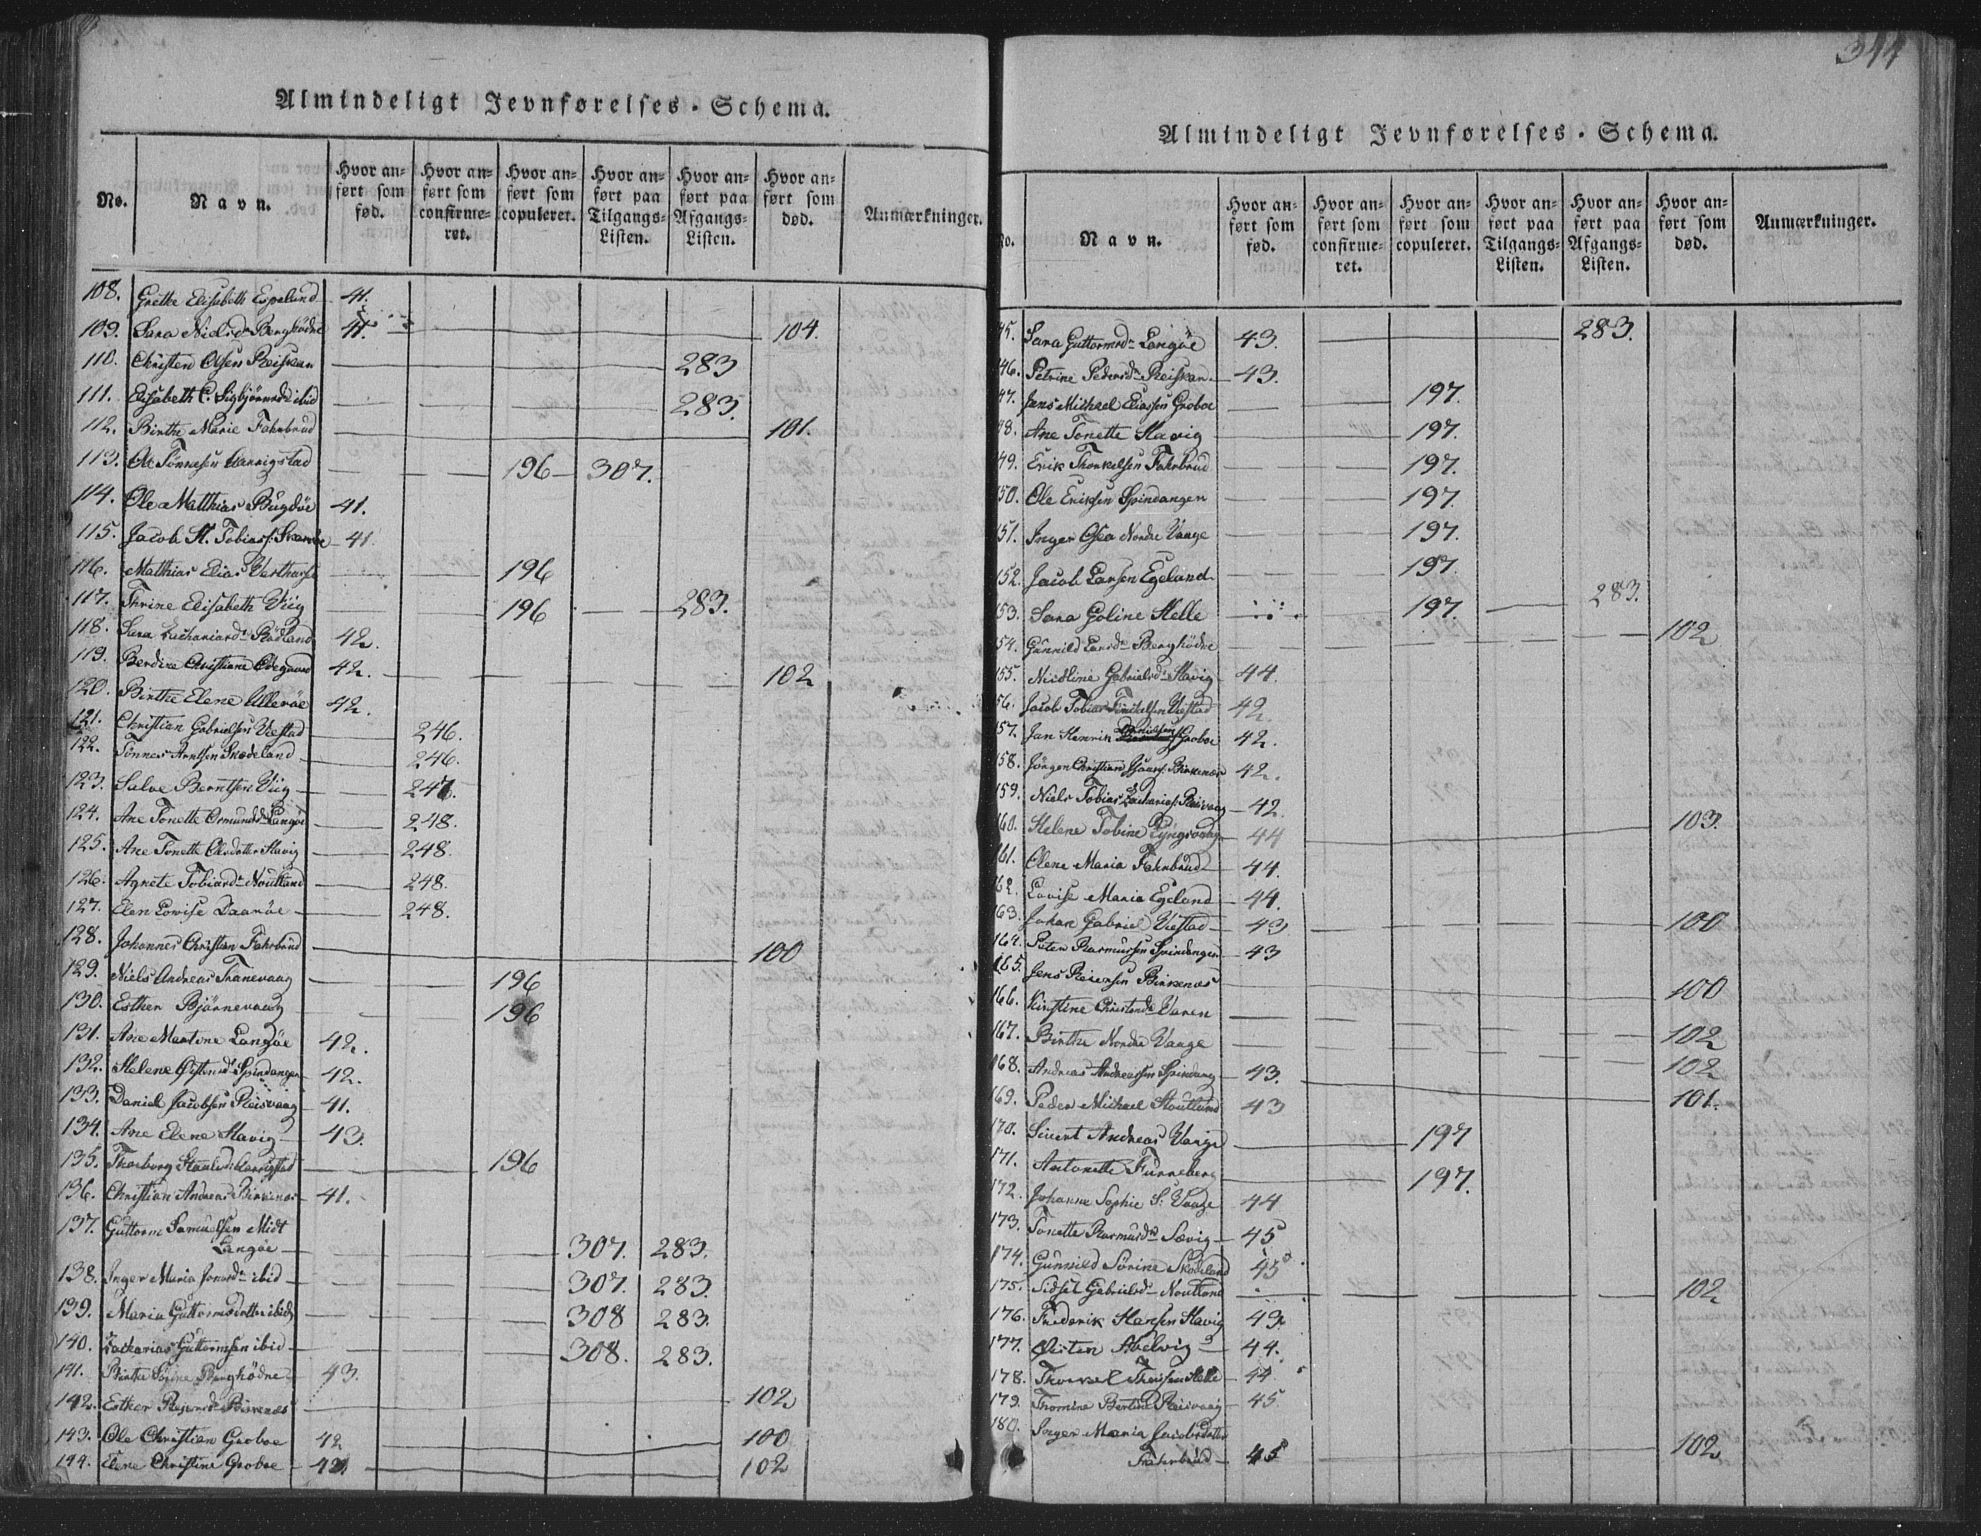 344
Almindeligt Jevnførelses-Schema.
No.
Navn.
Hvor anført som fød.
Hvor anført som confirmeret.
Hvor anført som copuleret.
Hvor anført paa Tilgangs-Listen.
Hvor anført paa Afgangs-Listen.
Hvor anført som død.
Anmærkninger.
108. Grethe Elisabeth Espelund 41.
109. Sara Nielsdr Berghødne 41. 104.
110. Christen Olsen Reiskan 283
111. Elisabeth C. Sigbjørnsdr ibid 283.
112. Birthe Marie Fahrbrud 101.
113. Ole Tønnesen 196 307.
114. Ole Matthias Bugdøe 41.
115. Jacob H. Tobiass. 41.
116. Matthias Elias 196
117. Thrine Elisabeth Viig 196 283.
118. Sara Zachariasdr Rødland 42.
119. Berdine Christiane Odegaard 42. 102
120. Birthe Elene Ullerøe 42.
121. Christian Gabrielsen Viestad 246.
122. Tønnes Arntsen Skodeland 246.
123. Salve Berntsen Viig 247.
124. Ane Tonette Ormundsdr Langøe 248.
125. Ane Tonette Olesdatter Havig 248.
126. Agnete Tobiasdr Noutland 248.
127. Elen Lovise Daarøe 248.
128. Johannes Christian Fahrbrud 100
129. Niels Andreas Tranevaag 196
130. Esther Bjørnevaag 196
131. Ane Martine Langøe 42.
132. Helene Østensdr Spindangen 42.
133. Daniel Jacobsen Reisvaag 41.
134. Ane Elene Havig 43.
135. Thorborg 196
136. Christian Andreas Birkenes 41.
137. Guttorm Samuelsen Midt
Langøe 307. 283.
138. Inger Maria Jonasdr ibid 307. 283.
139. Maria Guttormsdatter ibid 308 283.
140. Zacharias Guttormsen ibid 308. 283.
141. Birthe Berghødne 43.
142. Esther Reiersdr Birkenes 102
143. Ole Christian Groboe 42 100
144. Elene Christine Groboe 42. 102
Almindeligt Jevnførelses-Schema.
No.
Navn.
Hvor anført som fød.
Hvor anført som confirmeret.
Hvor anført som copuleret.
Hvor anført paa Tilgangs-Listen.
Hvor anført paa Afgangs-Listen.
Hvor anført som død.
Anmærkninger.
45. Sara Guttormsdr Langøe 43. 283.
46. Petrine Pedersdr Reiskan 43.
47. Jens Michael Eliassen Groboe 197.
48. Ane Tonette Havig 197.
49. Erik Thorkelsen Fahrbrud 197.
50. Ole Eriksen Spindangen 197.
151. Inger Osea Nordre Vaage 197.
152. Jacob Larsen Egeland 197.
153. Sara Goline Helle 197. 283.
154. Gunnild Larsdr Berghødne 102
155. Nicoline Gabrielsdr Havig 44.
56. Jacob Tobias Viestad 42.
157. Jan Henrik Danielsen Groboe 42.
158. Jørgen Christian Birkenes 42.
159. Niels Tobias Zachariass. Reisvaag 42.
160. Helene Tobine Lyngsvaag 44 103.
161. Elene Maria Fahrbrud 44.
162. Lovise Maria Egeland 44.
163. Johan Gabriel Viestad 43 100
164. Peter Rasmussen Spindangen 43
165. Jens Reiersen Birkenes 100
166. Kirstine Christensdr Varen
167. Birthe Nordre Vaage 102
168. Andreas Andreassen Spindang 43. 102
169. Peder Michael Noutland 43 101.
170. Sivert Andreas Vaage 197
171. Antonette Furreberg 197.
172. Johanne Sophie S. Vaage 44
173. Tonette Rasmusdr Sævig 45
174. Gunnild Sorine Skodeland 45
175. Sidsel Gabrielsdr Noutland 102
176. Frederik Hansen Havig 43
177. Østen Abelvig 44.
178. Thorkel Theissen Helle 44
179. Thomine Bertine Reisvaag 45
180. Inger Maria Jacobsdatter
Fahrbrud 45 102